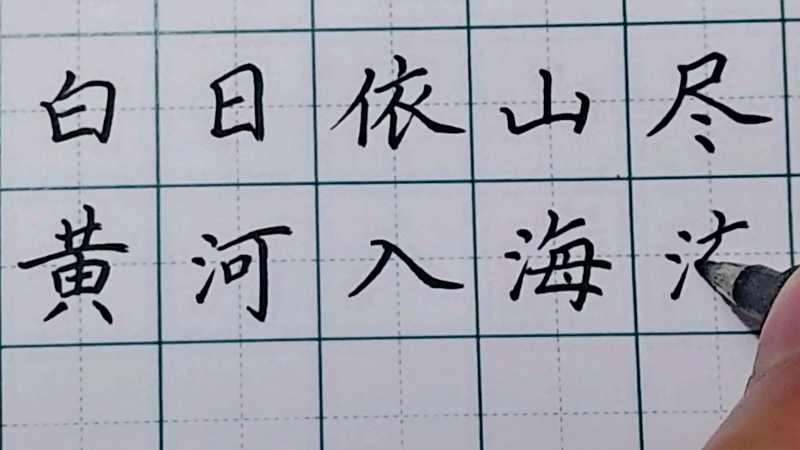 白日依山尽
黄河入海